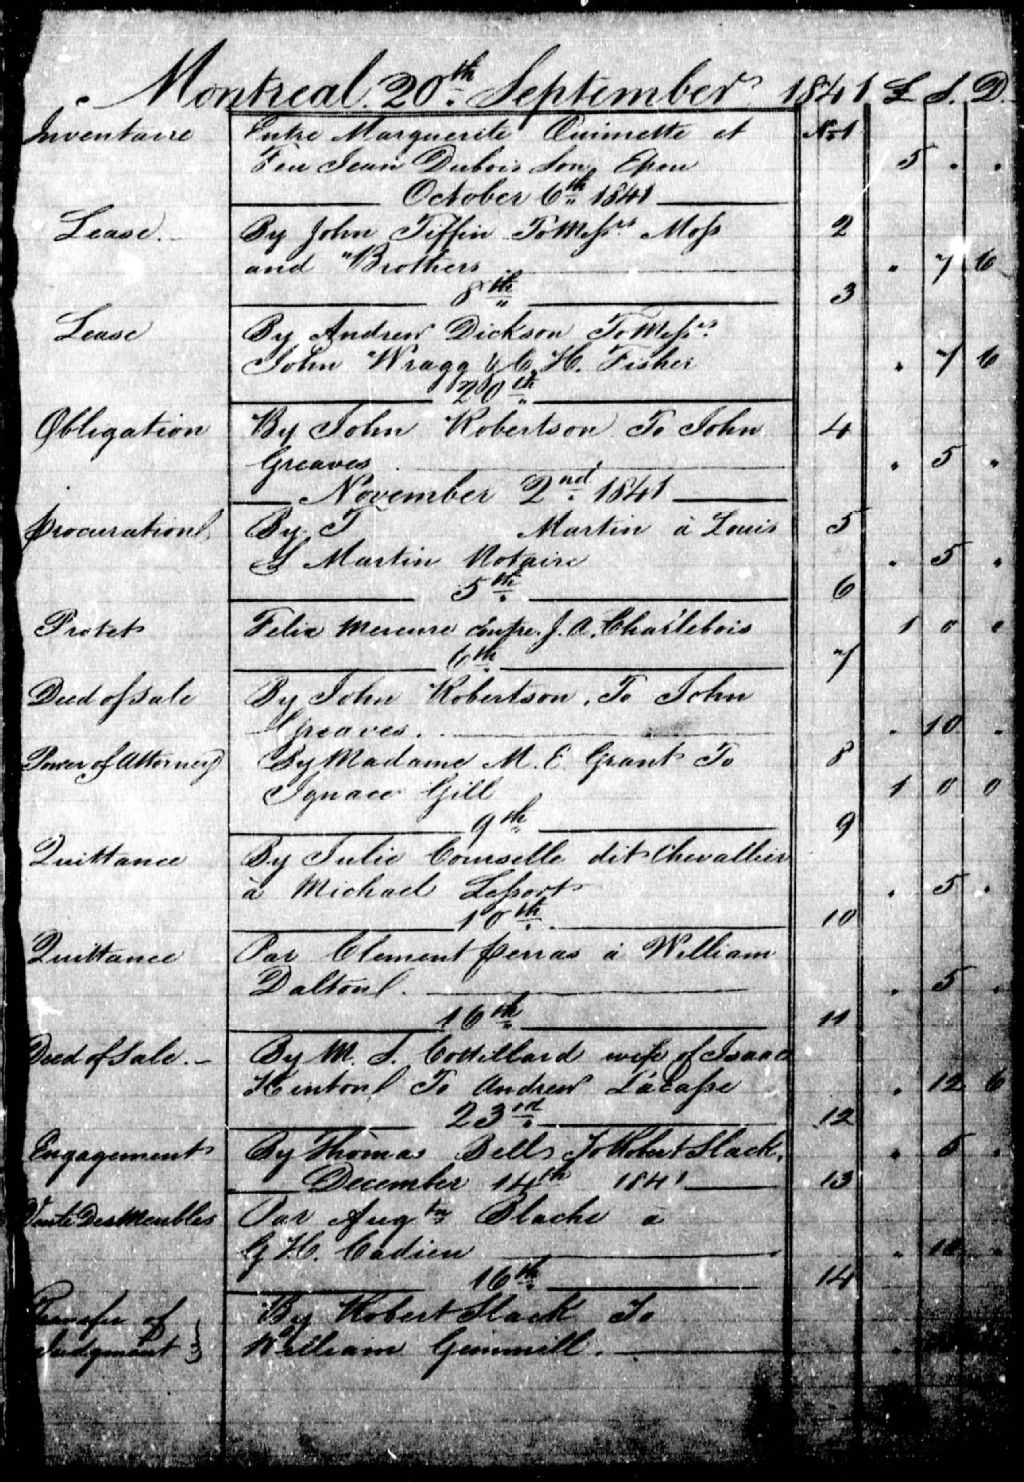 Montreal 20th September 1841 £ S. D.
Inventaire Entre Marguerite Ouimette et No 1
Feu Jean Dubois Son Epou 5 . .
October 6th 1841
Lease. By John Tiffin To Messrs Moss 2
and Brothers " 7 6
8th 3
Lease By Andrew Dickson To Messrs
John Wragg & C. H. Fisher " 7 6
20th
Obligation By John Robertson To John 4
Greaves " 5 "
November 2nd 1841
Procuration By T Martin à Louis 5
S Martin Notaire " 5 "
5th 6
Protet Felix Mercure Contre J. A. Charlebois 1 0 0
6th 7
Deed of Sale By John Robertson, To John
Greaves. " 10 "
Power of Attorney By Madame M. E. Grant To 8
Ignace Gill 1 0 0
9th 9
Quittance By Julie Courselle dit Chevallier
à Michael Lesport " 5 "
10th 10
Quittance Par Clement Perras à William
Dalton. " 5 "
16th 11
Deed of Sale. By M. S. Cotillard wife of Isaac
Hinton To Andrew Lacasse " 12 6
23rd 12
Engagement By Thomas Bells To Robert Slack. " 5 "
December 14th 1841 13
Vente Des Meubles Par Augtin Blache à
G H. Cadieu " 10 "
16th 14
Transfer of By Robert Slack To
Judgment } William Gemmill.